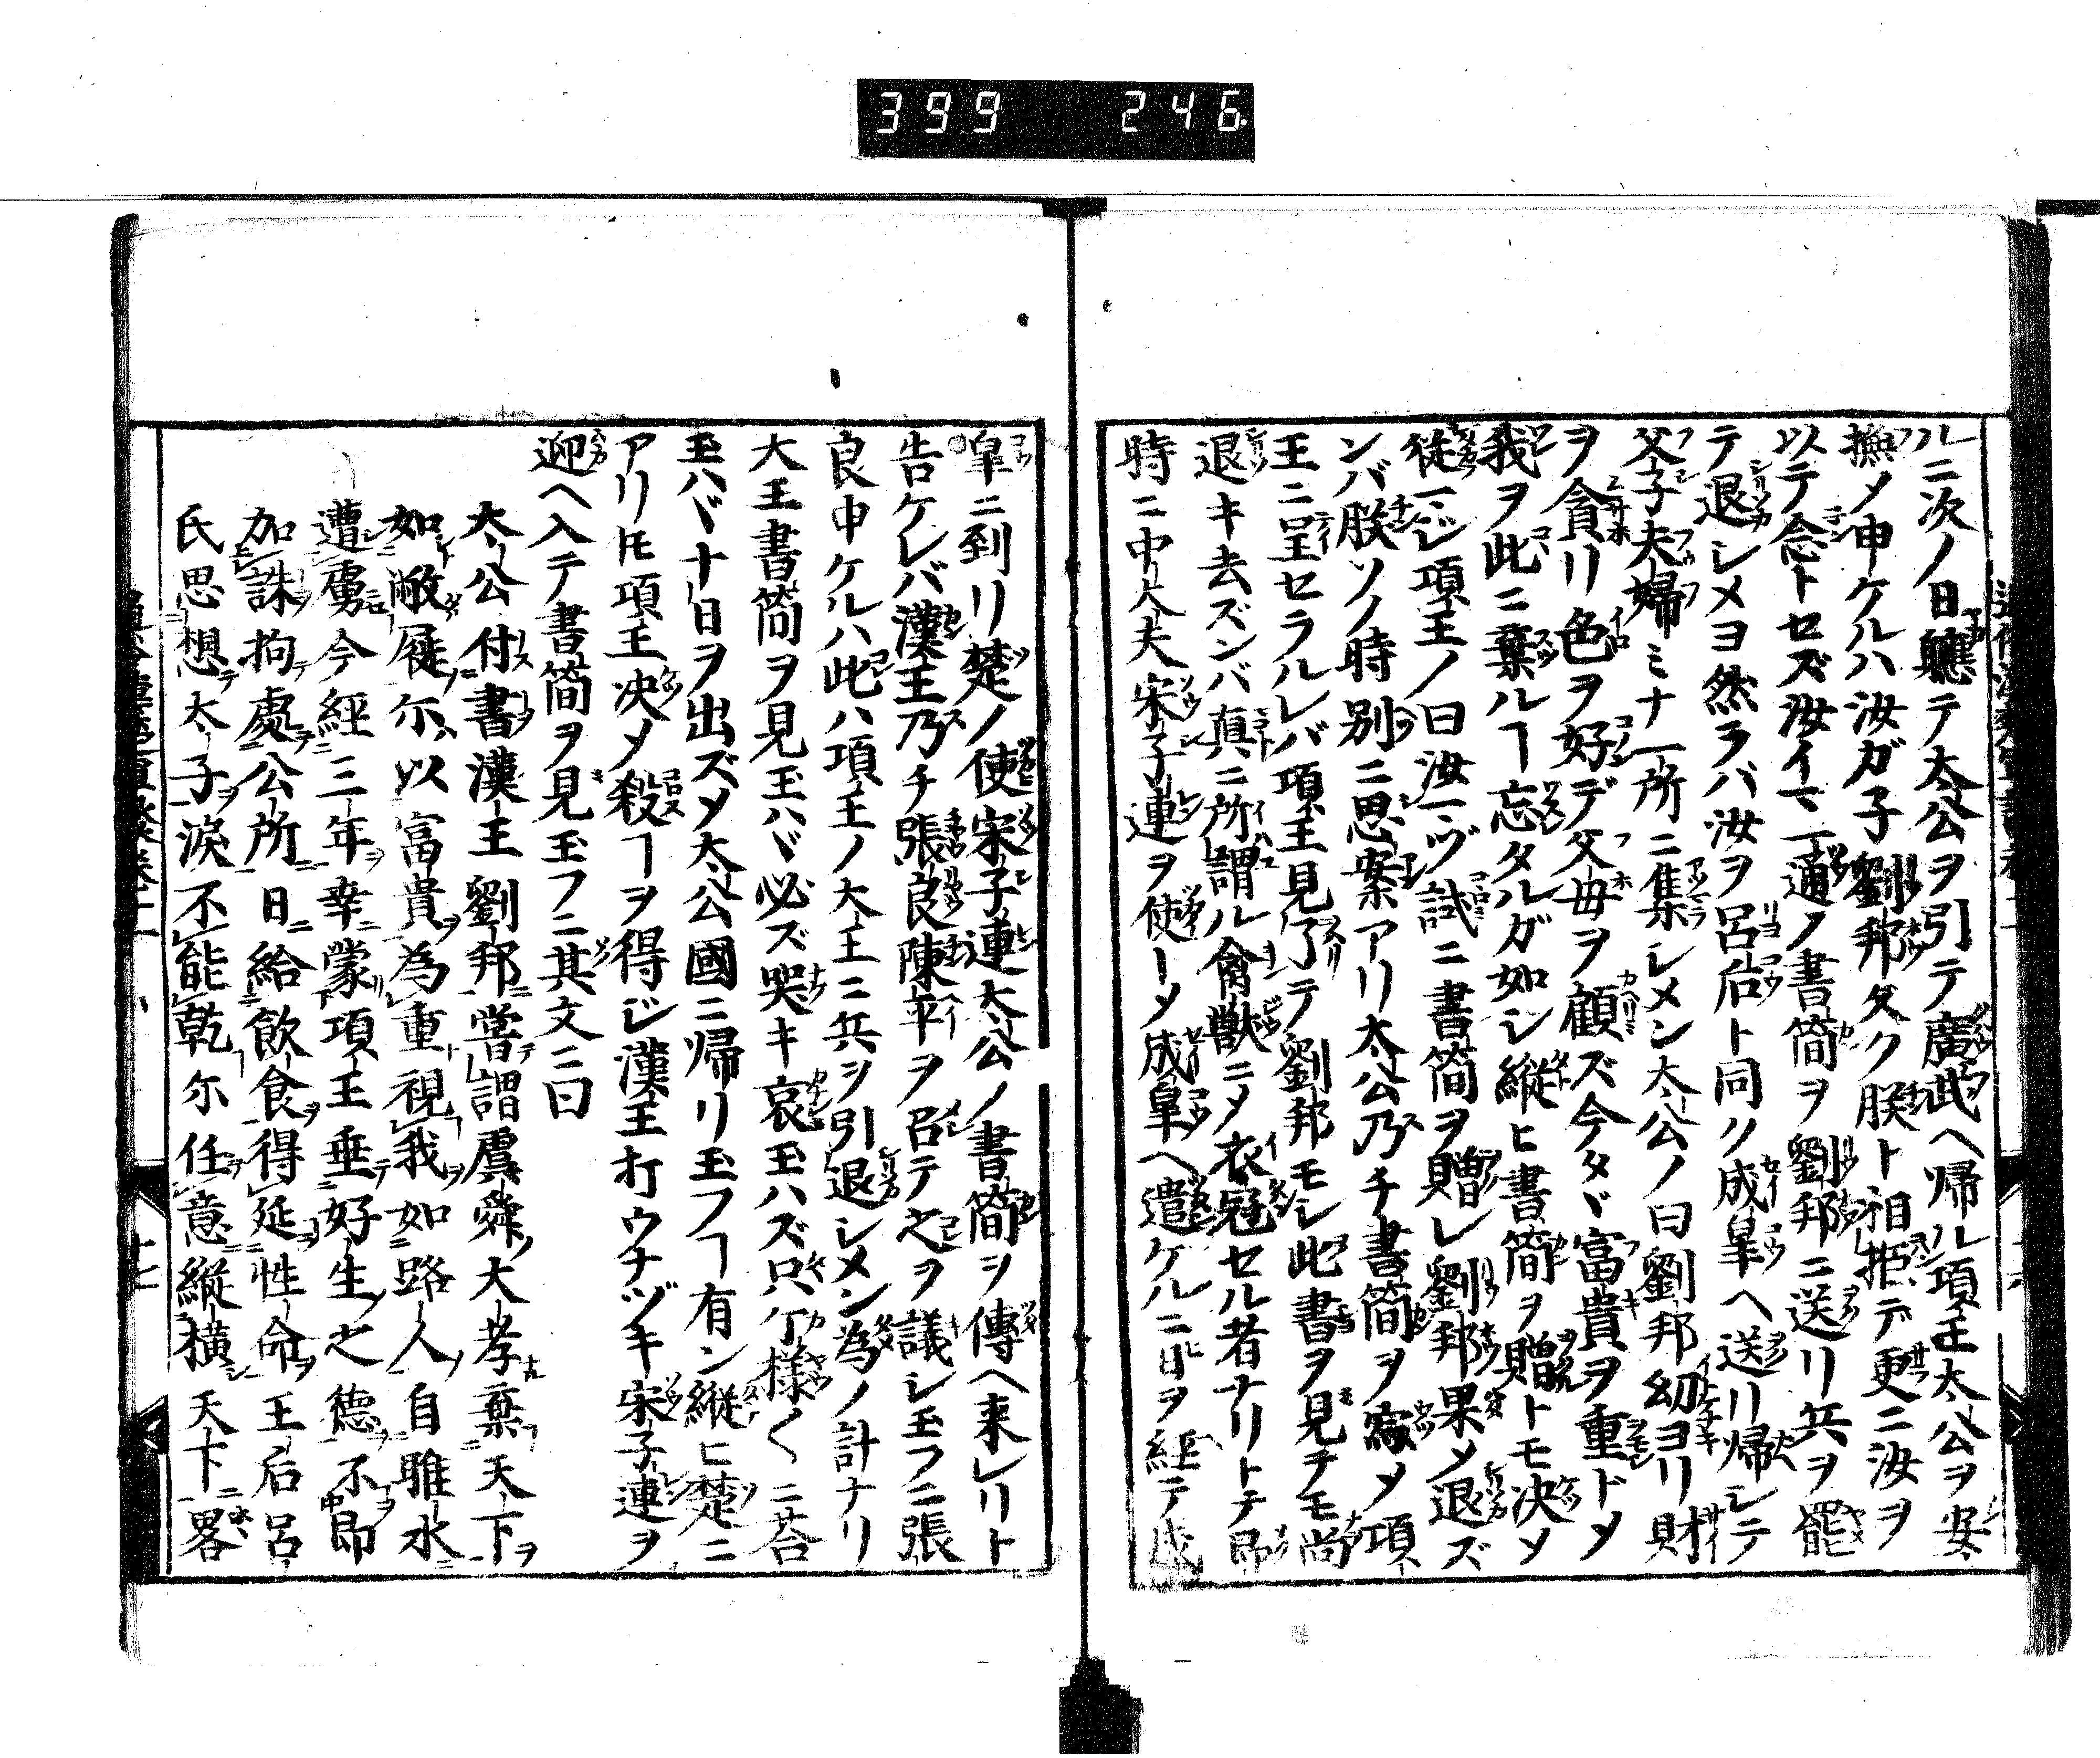 399 246
ルニ次ノ日聴テ太公ヲ引テ廣武ヘ帰ル項王太公ヲ安
撫メ申ケルハ汝ガ子劉邦久ク朕ト相拒デ更ニ汝ヲ
以テ念トセズ汝イマ一通ノ書簡ヲ劉邦ニ送リ兵ヲ罷
テ退シメヨ然ラバ汝ヲ呂后ト同ク成皐ヘ送リ帰シテ
父子夫婦ミナ一所ニ集レメン太公ノ曰劉邦幼ヨリ財
ヲ貪リ色ヲ好デ父母ヲ顧ズ今タヾ富貴ヲ重ドメ
我ヲ此ニ棄ルヿ忘タルガ如シ縦ヒ書簡ヲ贈トモ决メ
従ハジ項王ノ曰汝マヅ試ニ書簡ヲ贈レ劉邦果メ退ズ
ンバ朕ソノ時別ニ思案アリ太公乃チ書簡ヲ寫メ項
王ニ呈セラルレバ項王見了テ劉邦モシ此書ヲ見テモ尚
退キ去ズンバ真ニ所謂ル禽獣ニメ衣冠セル者ナリトテ即
時ニ中大夫宋子連ヲ使ーメ成皐ヘ遣ケルニ日ヲ經テ成
皐ニ到リ楚ノ使宋子連太公ノ書簡ヲ傳ヘ来レリト
告ケレバ漢王乃チ張良陳平ヲ召テ之ヲ議シ玉フニ張
良申ケルハ此ハ項王ノ大王ニ兵ヲ引退シメン為ノ計ナリ
大王書簡ヲ見玉ハヾ必ズ哭キ哀玉ハズ只箇様〱ニ荅
玉ハヾ十日ヲ出ズメ太公國ニ帰リ玉フヿ有ン縦ヒ楚ニ
アリ𪜈項王决メ殺ヿヲ得ジ漢王打ウナヅキ宋子連ヲ
迎ヘ入テ書簡ヲ見玉フニ其文ニ曰
太公付書漢王劉邦嘗謂虞舜大孝棄天下
如敝屣尓以富貴為重視我如路人自睢水
遭虜今經三年幸蒙項王垂好生之德不即
加誅拘處公所日給飲食得延性命王后呂
氏思想太子淚不能乾尓任意縱橫天下畧